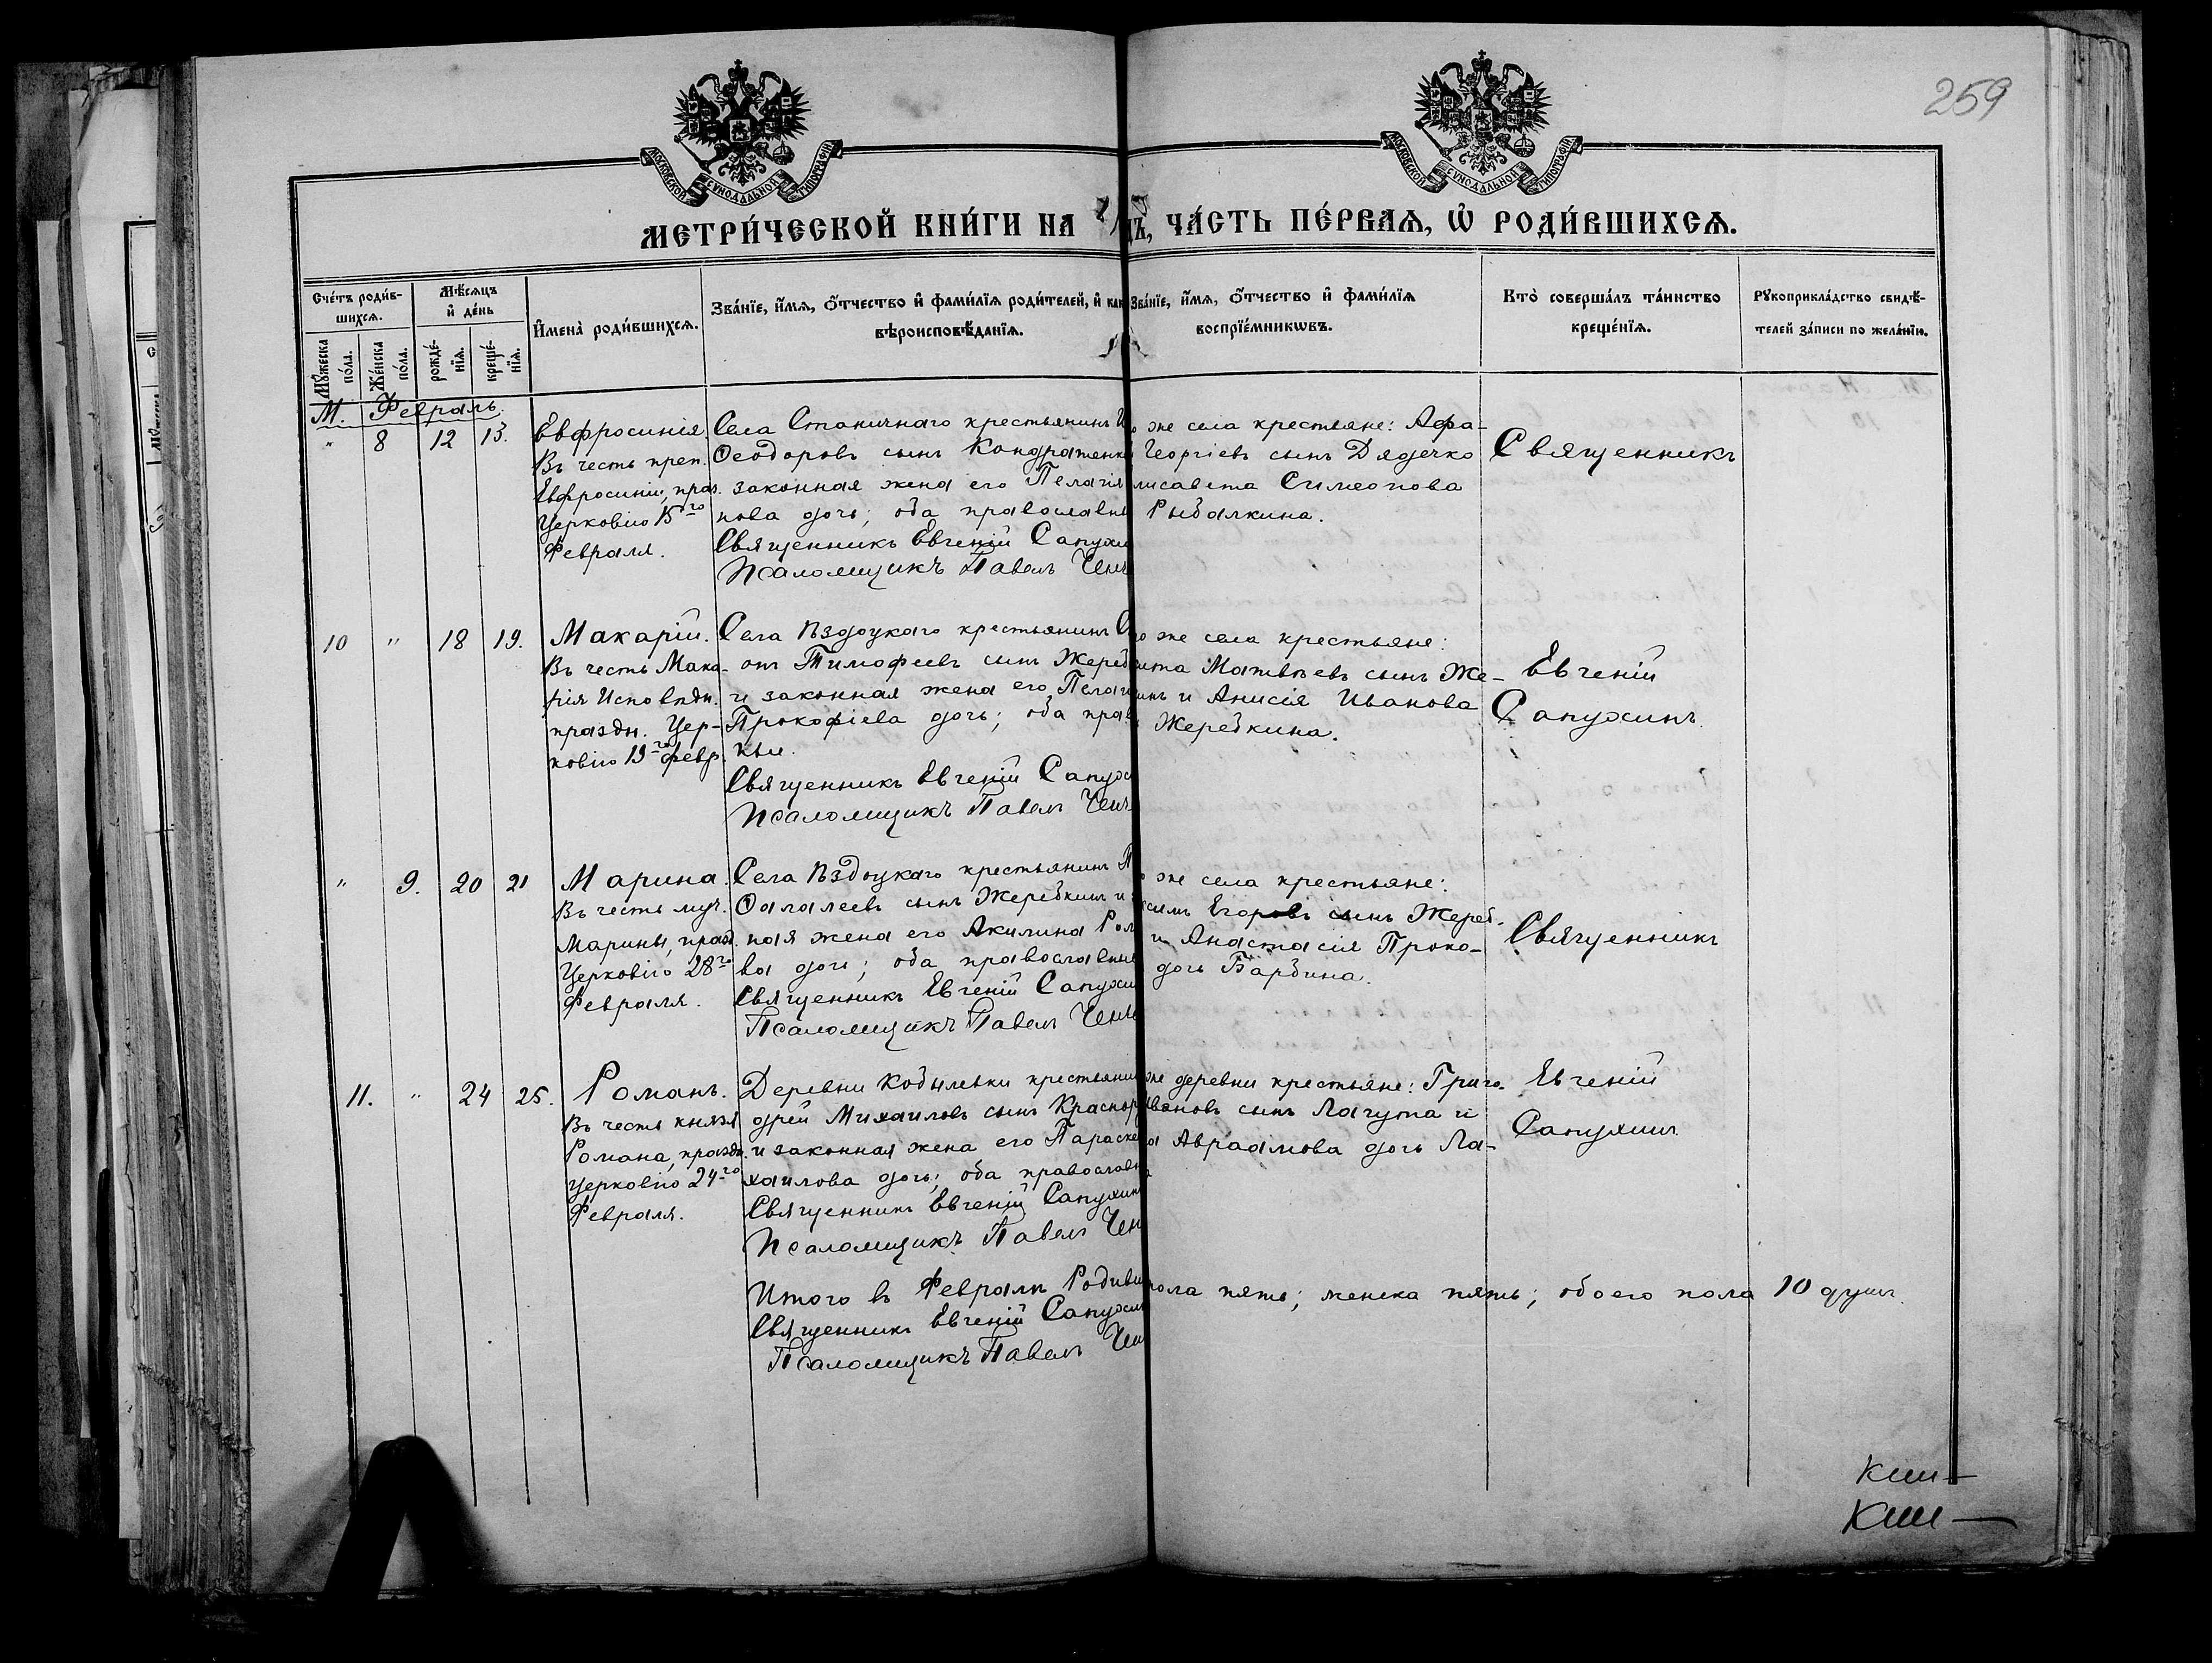 259
МОСКОВСКОЙ СѴНОДАЛЬНОЙ ТИПОГРАФІИ
МОСКОВСКОЙ СѴНОДАЛЬНОЙ ТИПОГРАФІИ
МЕТРИ́ЧЕСКОЙ КНИ́ГИ НА
ЧА́СТЬ ПЕ́РВАѦ, Ѡ҆ РОДИ́ВШИХСѦ.
Сче́тъ роди́в-
шихсѧ.
Мꙋ́жеска
по́ла.
Же́нска
по́ла.
Мѣ́сѧцъ
и҆ де́нь
рожде́-
нїѧ.
креще́-
нїѧ.
И҆мена̀ роди́вшихсѧ.
Зва́нїе, и҆́мѧ, ѻ҆́тчество и҆ фами́лїѧ роди́телей, и҆ как
вѣроисповѣ́данїѧ.
Зва́нїе, и҆́мѧ, ѻ҆́тчество и҆ фами́лїѧ
воспрїе́мникѡвъ.
Кто̀ соверша́лъ та́инство
креще́нїѧ.
Рꙋкоприкла́дство свидѣ́-
телей за́писи по жела́нїю.
М. Февраль.
" 8 12 13.
Евфросинія.
Въ честь преп.
Евфросиніи, праз.
Церковію 15го
Февраля.
Села Станичнаго крестьянинъ И
Ѳеодоровъ сынъ Кондратенко
законная жена его Пелагія
нова дочь; оба православны
Священникъ Евгеній Сапухи
Псаломщикъ Павелъ Чен
о же села крестьяне: Афа-
Георгіевъ сынъ Дядечко
лисавета Симеонова
Рыбалкина.
Священникъ
10 " 18 19.
Макарій.
Въ честь Мака-
рія Исповѣдн.
праздн. Цер-
ковію 19го февр.
Села Ѣздоцкаго крестьянинъ С
онъ Тимофеевъ сынъ Жереб
и законная жена его Пелаг
Прокофіева дочь; оба прав
ные.
Священникъ Евгеній Сапух
Псаломщикъ Павелъ Чен
о же села крестьяне:
ита Матвѣевъ сынъ Же-
инъ и Анисія Иванова
Жеребкина.
Евгеній
Сапухинъ.
" 9. 20 21
Марина.
Въ честь муч.
Марины, празд.
Церковію 28го
Февраля.
Села Ѣздоцкаго крестьянинъ П
Ѳалалеевъ сынъ Жеребкинъ и
ная жена его Акилина Ром
ва дочь; оба православны
Священникъ Евгеній Сапухи
Псаломщикъ Павелъ Чен
о же села крестьяне:
Егоровъ сынъ Жереб-
и Анастасія Проко-
дочь Барбина.
Священникъ
11. " 24 25.
Романъ.
Въ честь князя
Романа, праздн.
Церковію 24го
Февраля.
Деревни Кобылевки крестьянин
дрей Михаиловъ сынъ Краснор
и законная жена его Параске
хаилова дочь; оба православн
Священникъ Евгеній Сапухин
Псаломщикъ Павелъ Чен
же деревни крестьяне: Григо-
Ивановъ сынъ Лагута и
а Авраамова дочь Ла-
Евгеній
Сапухинъ.
Итого въ Февралѣ Родивш
пола пять; женска пять; обоего пола 10 душъ.
Священникъ Евгеній Сапухи
Псаломщикъ Павелъ Чен